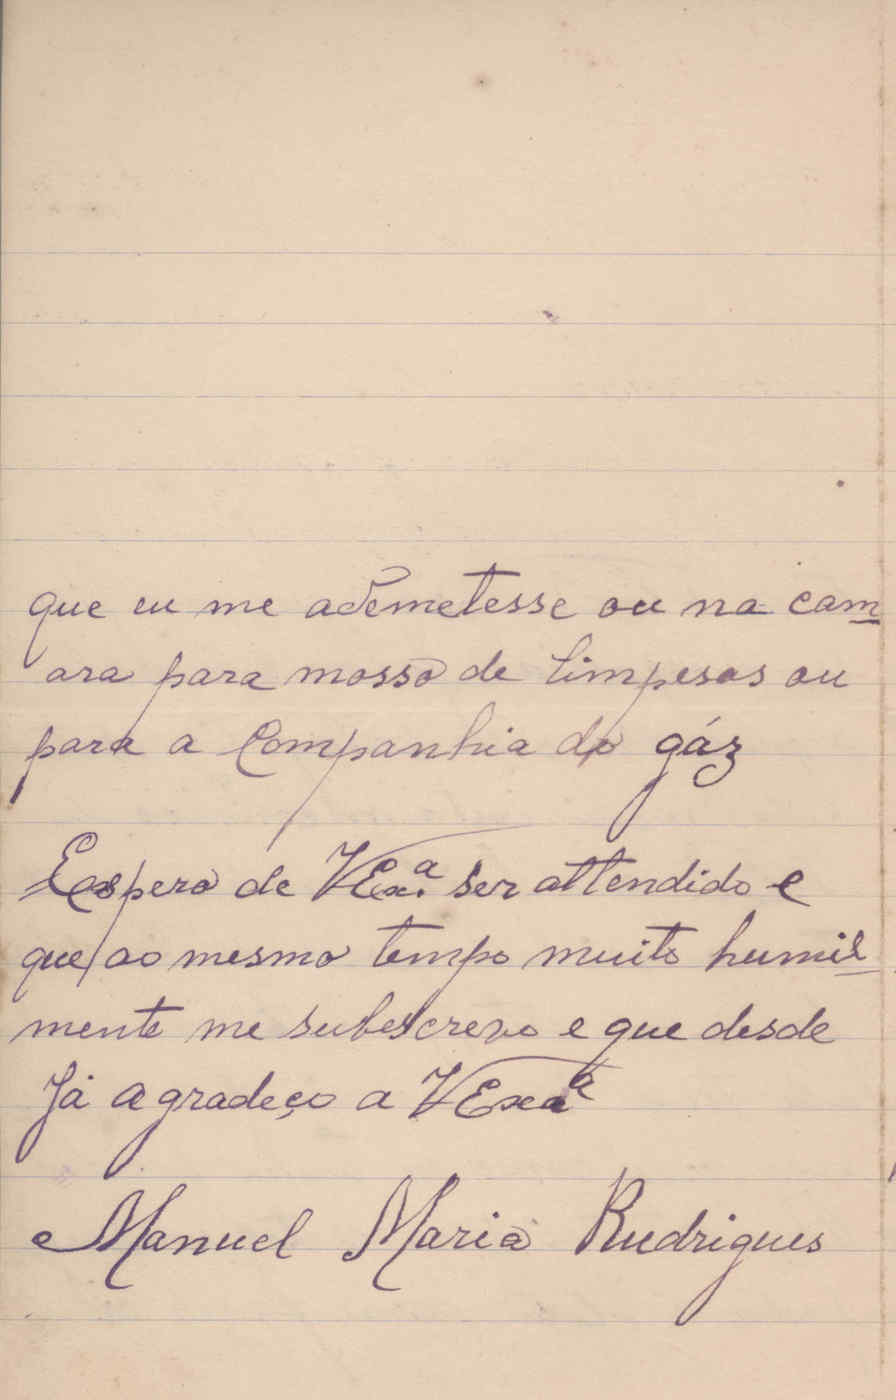 que eu me ademetesse ou na cam
ara para mosso de limpesas ou
para a Companhia do gáz
Espero de VExª ser attendido e
que ao mesmo tempo muito humil
mente me subescrevo e que desde
Já agradeço a VExª
Manuel Maria Rudrigues